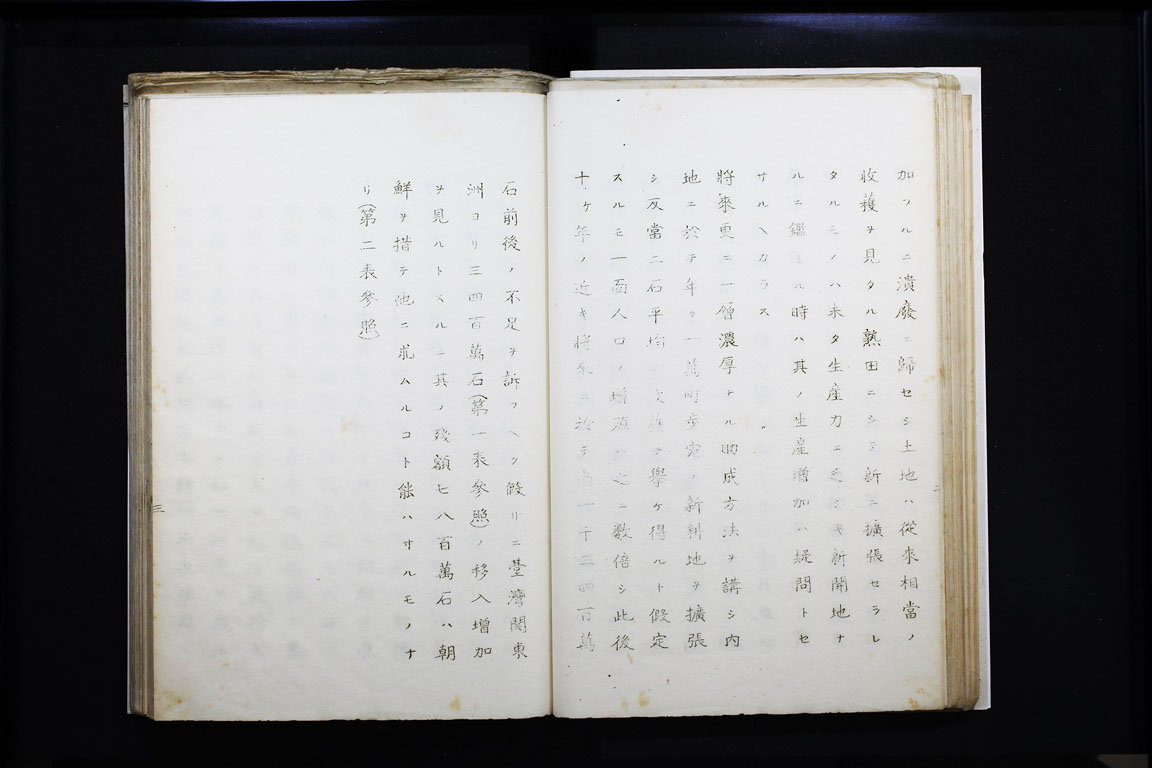 加フルニ潰廢ニ歸セシ土地ハ從來相當ノ
收穫ヲ見タル熟田ニシテ新ニ擴張セラレ
タルモノハ未タ生産力ニ乏シキ新開地ナ
ルニ鑑ミル時ハ其ノ生産増加ハ疑問トセ
サルヘカラス
將來更ニ一層濃厚ナル助成方法ヲ講シ内
地ニ於テ年々一萬町歩宛ノ新耕地ヲ擴張
シ反當二石平均ノ收穫ヲ擧ケ得ルト假定
スルモ一面人口ノ増殖ハ之ニ数倍シ此後
十ケ年ノ近キ將來ニ於テ尚一千三四百萬
二
石前後ノ不足ヲ訴フヘク假リニ臺灣関東
洲ヨリ三四百萬石(第一表參照)ノ移入増加
ヲ見ルトスルニ其ノ殘額七八百萬石ハ朝
鮮ヲ措テ他ニ求ムルコト能ハサルモノナ
リ(第二表參照)
三